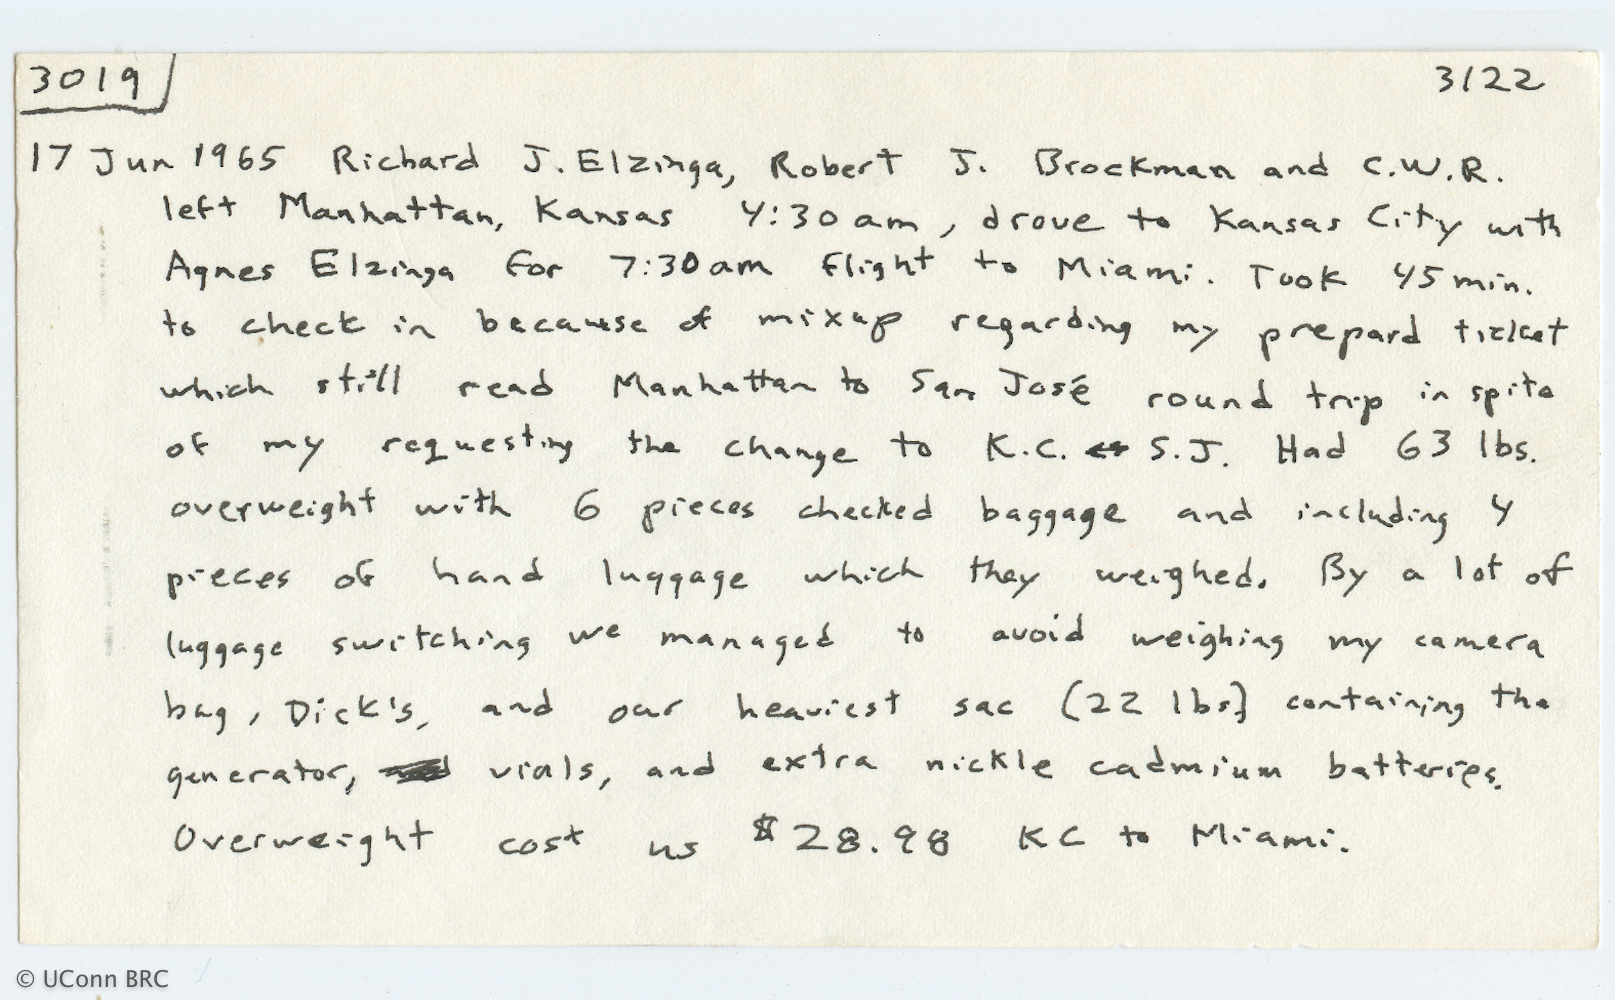 3019 3122
17 Jun 1965 Richard J. Elzinga, Robert J. Brockman and C.W.R.
left Manhattan, Kansas 4:30 am, drove to Kansas City with
Agnes Elzinga for 7:30 am flight to Miami. Took 45 min.
to check in because of mixup regarding my prepard ticket
which still read Manhattan to San José round trip in spite
of my requesting the change to K.C. ↔ S.J. Had 63 lbs.
overweight with 6 pieces checked baggage and including 4
pieces of hand luggage which they weighed. By a lot of
luggage switching we managed to avoid weighing my camera
bag, Dick's, and our heaviest sac (22 lbs) containing the
generator, vials, and extra nickle cadmium batteries.
Overweight cost us $28.98 KC to Miami.
© UConn BRC